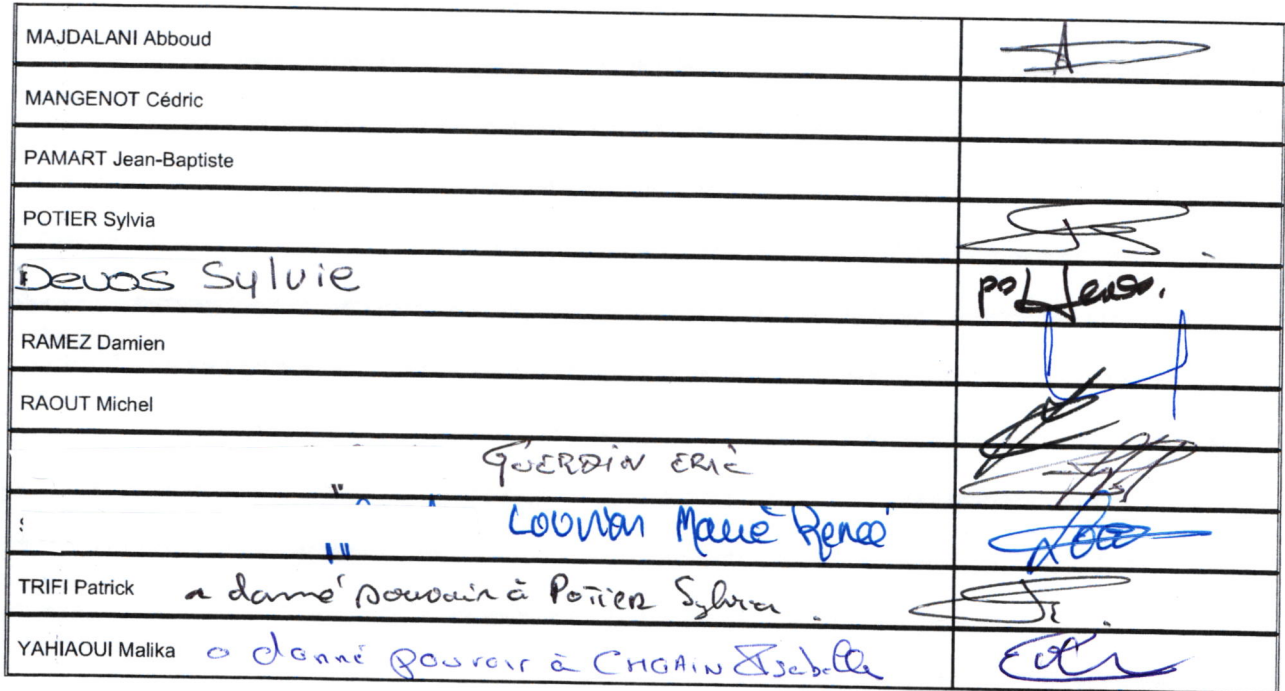 MAJDALANI Abboud
MANGENOT Cédric
PAMART Jean-Baptiste
POTIER Sylvia
Devos Sylvie
po Devos.
RAMEZ Damien
RAOUT Michel
GUERDIN ERIC
Marie Renée
TRIFI Patrick a donné pouvoir à POTIER Sylvia.
YAHIAOUI Malika a donné pouvoir à CHGAIN Isabelle